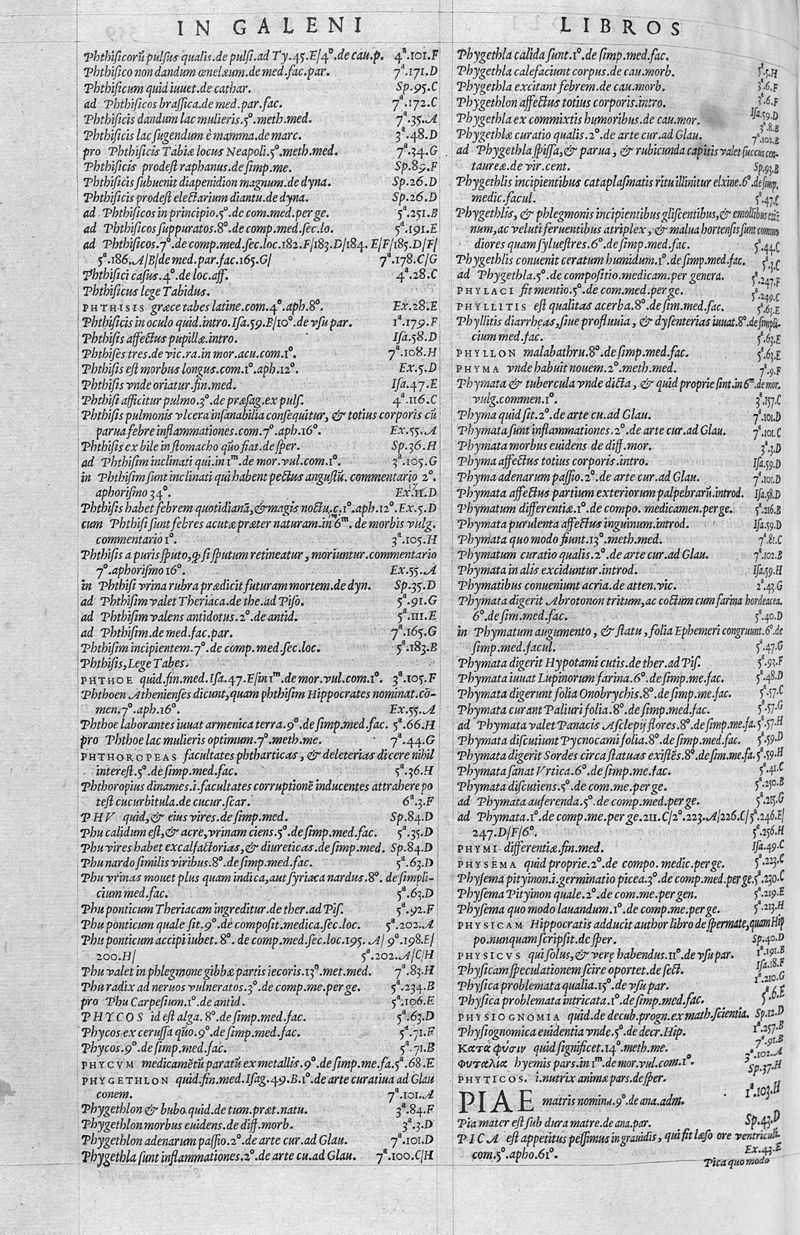 IN GALENI
Phthisicorū pulsus qualis.de pulsi.ad Ty.45.E/4°.de cau.p. 4ª.101.F
Phthisico non dandum œnelæum.de med.fac.par. 7ª.171.D
Phthisicum quid iuuet.de cathar. Sp.95.C
ad Phthisicos brassica.de med.par.fac. 7ª.172.C
Phthisicis dandum lac mulieris.5°.meth.med. 7ª.35.A
Phthisicis lac sugendum è mamma.de marc. 3ª.48.D
pro Phthisicis Tabiæ locus Neapoli.5°.meth.med. 7ª.34.G
Phthisicis prodest raphanus.de simp.me. Sp.89.F
Phthisicis subuenit diapenidion magnum.de dyna. Sp.26.D
Phthisicis prodest electarium diantu.de dyna. Sp.26.D
ad Phthisicos in principio.5°.de com.med.per ge. 5ª.251.B
ad Phthisicos suppuratos.8°.de comp.med.sec.lo. 5ª.191.E
ad Phthisicos.7°.de comp.med.sec.loc.182.F/183.D/184.E/F/185.D/F/
5ª.186.A/B/de med.par.fac.165.G/ 7ª.178.C/G
Phthisici casus.4°.de loc.aff. 4ª.28.C
Phthisicus lege Tabidus.
PHTHISIS græce tabes latine.com.4°.aph.8°. Ex.28.E
Phthisicis in oculo quid.intro.Isa.59.E/10°.de vsu par. 1ª.179.F
Phthisis affectus pupillæ.intro. Isa.58.D
Phthises tres.de vic.ra.in mor.acu.com.1°. 7ª.108.H
Phthisis est morbus longus.com.1°.aph.12°. Ex.5.D
Phthisis vnde oriatur.fin.med. Isa.47.E
Phthisi afficitur pulmo.3°.de præsag.ex puls. 4ª.116.C
Phthisis pulmonis vlcera insanabilia consequitur, & totius corporis cū
parua febre inflammationes.com.7°.aph.16°. Ex.55.A
Phthisis ex bile in stomacho quo fiat.de sper. Sp.36.H
ad Phthisim inclinati qui.in 1m.de mor.vul.com.1°. 3ª.105.G
in Phthisim sunt inclinati qui habent pectus angustū. commentario 2°.
aphorismo 34°. Ex.11.D
Phthisis habet febrem quotidianā,& magis noctu.c.1°.aph.12°.Ex.5.D
cum Phthisi sunt febres acutæ præter naturam.in 6m. de morbis vulg.
commentario 1°. 3ª.105.H
Phthisis a puris sputo,q̃ si sputum retineatur, moriuntur.commentario
7°.aphorismo 16°. Ex.55.A
in Phthisi vrina rubra prædicit futuram mortem.de dyn. Sp.35.D
ad Phthisim valet Theriaca.de the.ad Piso. 5ª.91.G
ad Phthisim valens antidotus.2°.de antid. 5ª.111.E
ad Phthisim.de med.fac.par. 7ª.165.G
Phthisim incipientem.7°.de comp.med.sec.loc. 5ª.183.B
Phthisis, Lege Tabes.
PHTHOE quid.fin.med.Isa.47.E/in 1m.de mor.vul.com.1°. 3ª.105.F
Phthoen Athenienses dicunt,quam phthisim Hippocrates nominat.cō-
men.7°.aph.16°. Ex.55.A
Phthoe laborantes iuuat armenica terra.9°.de simp.med.fac. 5ª.66.H
pro Phthoe lac mulieris optimum.7°.meth.me. 7ª.44.G
PHTHOROPEAS facultates phtharticas, & deleterias dicere nihil
interest.5°.de simp.med.fac. 5ª.36.H
Phthoropius dinames.i.facultates corruptionē inducentes attrahere po
test cucurbitula.de cucur.scar. 6ª.3.F
PHV quid,& eius vires.de simp.med. Sp.84.D
Phu calidum est,& acre,vrinam ciens.5°.de simp.med.fac. 5ª.35.D
Phu vires habet excalfactorias,& diureticas.de simp.med. Sp.84.D
Phu nardo similis viribus.8°.de simp.med.fac. 5ª.63.D
Phu vrinas mouet plus quam indica,aut syriaca nardus.8°. de simpli-
cium med.fac. 5ª.63.D
Phu ponticum Theriacam ingreditur.de ther.ad Pis. 5ª.92.F
Phu ponticum quale sit.9°.de composit.medica.sec.loc. 5ª.202.A
Phu ponticum accipi iubet. 8°. de comp.med.sec.loc.195.A/ 9°.198.E/
200.H/ 5ª.202.A/C/H
Phu valet in phlegmone gibbæ partis iecoris.13°.met.med. 7ª.83.H
Phu radix ad neruos vulneratos.3°.de comp.me.per ge. 5ª.234.B
pro Phu Carpesium.1°.de antid. 5ª.106.E
PHYCOS id est alga.8°.de simp.med.fac. 5ª.63.D
Phycos ex cerussa quo.9°.de simp.med.fac. 5ª.71.F
Phycos.9°.de simp.med.fac. 5ª.71.B
PHYCVM medicamētū paratū ex metallis.9°.de simp.me.fa.5ª.68.E
PHYGETHLON quid.fin.med.Isag.49.B.1°.de arte curatiua ad Glau
conem. 7ª.101.A
Phygethlon & bubo quid.de tum.præt.natu. 3ª.84.F
Phygethlon morbus euidens.de diff.morb. 3ª.3.D
Phygethlon adenarum passio.2°.de arte cur.ad Glau. 7ª.101.D
Phygethla sunt inflammationes.2°.de arte cu.ad Glau. 7ª.100.C/H
LIBROS
Phygethla calida sunt.1°.de simp.med.fac. 5ª.5.H
Phygethla calefaciunt corpus.de cau.morb. 3ª.6.F
Phygethla excitant febrem.de cau.morb. 3ª.6.F
Phygethlon affectus totius corporis.intro. Isa.59.D
Phygethla ex commixtis humoribus.de cau.mor. 3ª.8.B
Phygethlæ curatio qualis.2°.de arte cur.ad Glau. 7ª.102.B
ad Phygethla spissa,& parua, & rubicunda capitis valet succus cen-
taureæ.de vir.cent. Sp.93.B
Phygethlis incipientibus cataplasmatis ritu illinitur elxine.6°.de simp.
medic.facul. 5ª.47.C
Phygethlis, & phlegmonis incipientibus gliscentibus,& emollibus etiā-
num,ac veluti feruentibus atriplex, & malua hortensis sunt commo
diores quam syluestres.6°.de simp.med.fac. 5ª.44.C
Phygethlis conuenit ceratum humidum.1°.de simp.med.fac. 5ª.3.C
ad Phygethla.5°.de compositio.medicam.per genera. 5ª.247.F
PHYLACI fit mentio.5°.de com.med.per ge. 5ª.249.C
PHYLLITIS est qualitas acerba.8°.de sim.med.fac. 5ª.63.E
Phyllitis diarrhęas,siue profluuia, & dysenterias iuuat.8°.de simpli-
cium med.fac. 5ª.63.E
PHYLLON malabathru.8°.de simp.med.fac. 5ª.63.E
PHYMA vnde habuit nouem.2°.meth.med. 7ª.9.F
Phymata & tubercula vnde dicta, & quid proprie sint.in 6m.de mor.
vulg.commen.1°. 3ª.157.C
Phyma quid sit.2°.de arte cu.ad Glau. 7ª.101.D
Phymata sunt inflammationes.2°.de arte cur.ad Glau. 7ª.101.C
Phymata morbus euidens de diff.mor. 3ª.3.D
Phyma affectus totius corporis.intro. Isa.59.D
Phyma adenarum passio.2°.de arte cur.ad Glau. 7ª.101.D
Phymata affectus partium exteriorum palpebrarū.introd. Isa.58.D
Phymatum differentiæ.1°.de compo. medicamen.per ge. 5ª.216.B
Phymata purulenta affectus inguinum.introd. Isa.59.D
Phymata quo modo fiunt.13°.meth.med. 7ª.81.C
Phymatum curatio qualis.2°.de arte cur.ad Glau. 7ª.102.B
Phymata in alis exciduntur.introd. Isa.59.H
Phymatibus conueniunt acria.de atten.vic. 2ª.43.G
Phymata digerit Abrotonon tritum,ac coctum cum farina hordeacea.
6°.de sim.med.fac. 5ª.40.D
in Phymatum augumento, & statu, folia Ephemeri congruunt.6°.de
simp.med.facul. 5ª.47.G
Phymata digerit Hypotami cutis.de ther.ad Pis. 5ª.93.F
Phymata iuuat Lupinorum farina.6°.de simp.me.fac. 5ª.48.D
Phymata digerunt folia Onobrychis.8°.de simp.me.fac. 5ª.57.C
Phymata curant Paliuri folia.8°.de simp.med.fac. 5ª.57.G
ad Phymata valet Panacis Asclepij flores.8°.de simp.me.fa.5ª.57.H
Phymata discutiunt Pycnocami folia.8°.de simp.med.fac. 5ª.59.D
Phymata digerit Sordes circa statuas existēs.8°.de sim.me.fa.5ª.59.H
Phymata sanat Vrtica.6°.de simp.me.fac. 5ª.41.C
Phymata discutiens.5°.de com.me.per ge. 5ª.250.B
ad Phymata auferenda.5°.de comp.med.per ge. 5ª.215.G
ad Phymata.1°.de comp.me.per ge.211.C/2°.223.A/226.C/5ª.246.E/
247.D/F/6°. 5ª.256.H
PHYMI differentiæ.fin.med. Isa.49.C
PHYSEMA quid proprie.2°.de compo.medic.per ge. 5ª.223.C
Physema pityinon.i.germinatio picea.3°.de comp.med.per ge.5ª.230.C
Physema Pityinon quale.2°.de com.me.per gen. 5ª.219.E
Physema quo modo lauandum.1°.de comp.me.per ge. 5ª.213.H
PHYSICAM Hippocratis adducit author libro de spermate,quam Hip
po.nunquam scripsit.de sper. Sp.40.D
PHYSICVS qui solus,& vere habendus.11°.de vsu par. 1ª.191.B
Physicam speculationem scire oportet.de sect. Isa.18.F
Physica problemata qualia.15°.de vsu par. 1ª.210.G
Physica problemata intricata.1°.de simp.med.fac. 5ª.6.E
PHYSIOGNOMIA quid.de decub.progn.ex math.scientia. Sp.12.D
Physiognomica euidentia vnde.5°.de decr.Hip. 1ª.257.B
Κατὰ φύσιν quid significet.14°.meth.me. 7ª.91.B
Φυταλιὰ hyemis pars.in 1m.de mor.vul.com.1°. 3ª.102.A
PHYTICOS. i.nutrix animæ pars.de sper. Sp.37.H
PIAE matris nomina.9°.de ana.adm. 1ª.103.H
Pia mater est sub dura matre.de ana.par. Sp.43.D
PICA est appetitus pessimus in grauidis, qui fit læso ore ventriculi.
com.5°.apho.61°. Ex.43.E
Pica quo modo